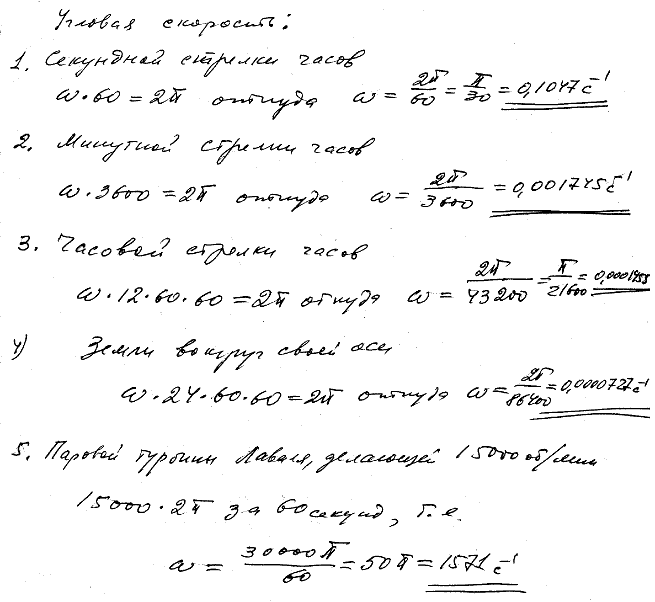 Угловая скорость:
1. Секундной стрелки часов
ω·60 = 2π откуда ω = 2π/60 = π/30 = 0,1047 c⁻¹
2. Минутной стрелки часов
ω·3600 = 2π откуда ω = 2π/3600 = 0,001745 c⁻¹
3. Часовой стрелки часов
ω·12·60·60 = 2π откуда ω = 2π/43200 = π/21600 = 0,0001455
4) Земли вокруг своей оси
ω·24·60·60 = 2π откуда ω = 2π/86400 = 0,0000727 c⁻¹
5. Паровой турбины Лаваля, делающей 15000 об/мин
15000·2π за 60 секунд, т.е.
ω = 30000π/60 = 50π = 1571 c⁻¹